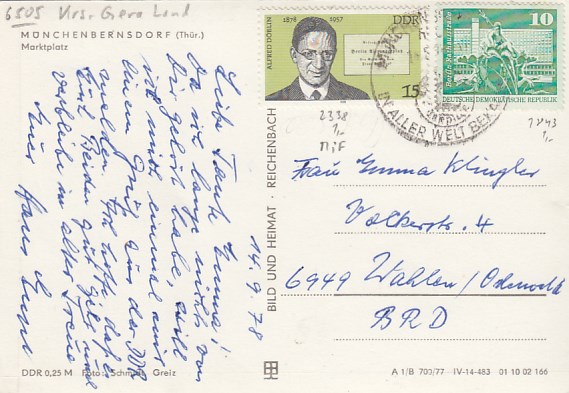 6505 Krs. Gera Land
MÜNCHENBERNSDORF (Thür.)
Marktplatz
ALFRED DÖBLIN
1878 1957
DDR
15
10
Berlin, Rathausstraße
DEUTSCHE DEMOKRATISCHE REPUBLIK
IN ALLER WELT BEK
2338
1,-
MiF
1843
1,-
Liebe Tante Emma!
Da wir lange nichts von
Dir gehört habe, will
ich mich einmal mit
ein Gruß aus der DDR
melden. Ich hoffe, daß es
Euch Beiden gut geht und
verbleibe in alter Treue
Euer Hans
14.9.78
BILD UND HEIMAT · REICHENBACH
Frau Emma Klingler
Volkerstr. 4
6949 Wahlen/Odenwald
BRD
DDR 0,25 M Foto: Schmidt, Greiz
A 1/B 700/77 IV-14-483 01 10 02 166